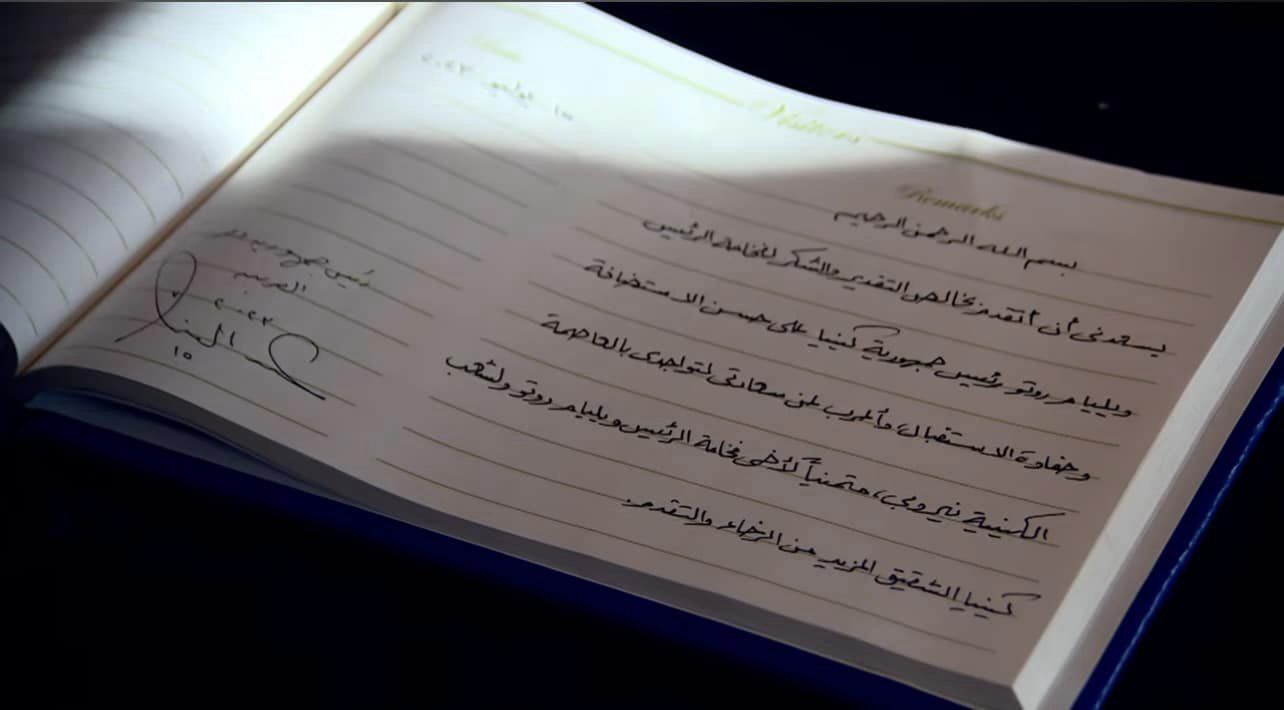 Remarks
١٥ يوليو ٢٠٢٣
بسم الله الرحمن الرحيم
يسعدنى أن أتقدم بخالص التقدير والشكر لفخامة الرئيس
ويليام روتو رئيس جمهورية كينيا على حسن الاستضافة
وحفاوة الاستقبال، وأعرب عن سعادتى لتواجدى بالعاصمة
الكينية نيروبى، متمنياً لأخى فخامة الرئيس ويليام روتو ولشعب
كينيا الشقيق المزيد من الرخاء والتقدم.
رئيس جمهورية مصر
العربية
٢٠٢٣
١٥